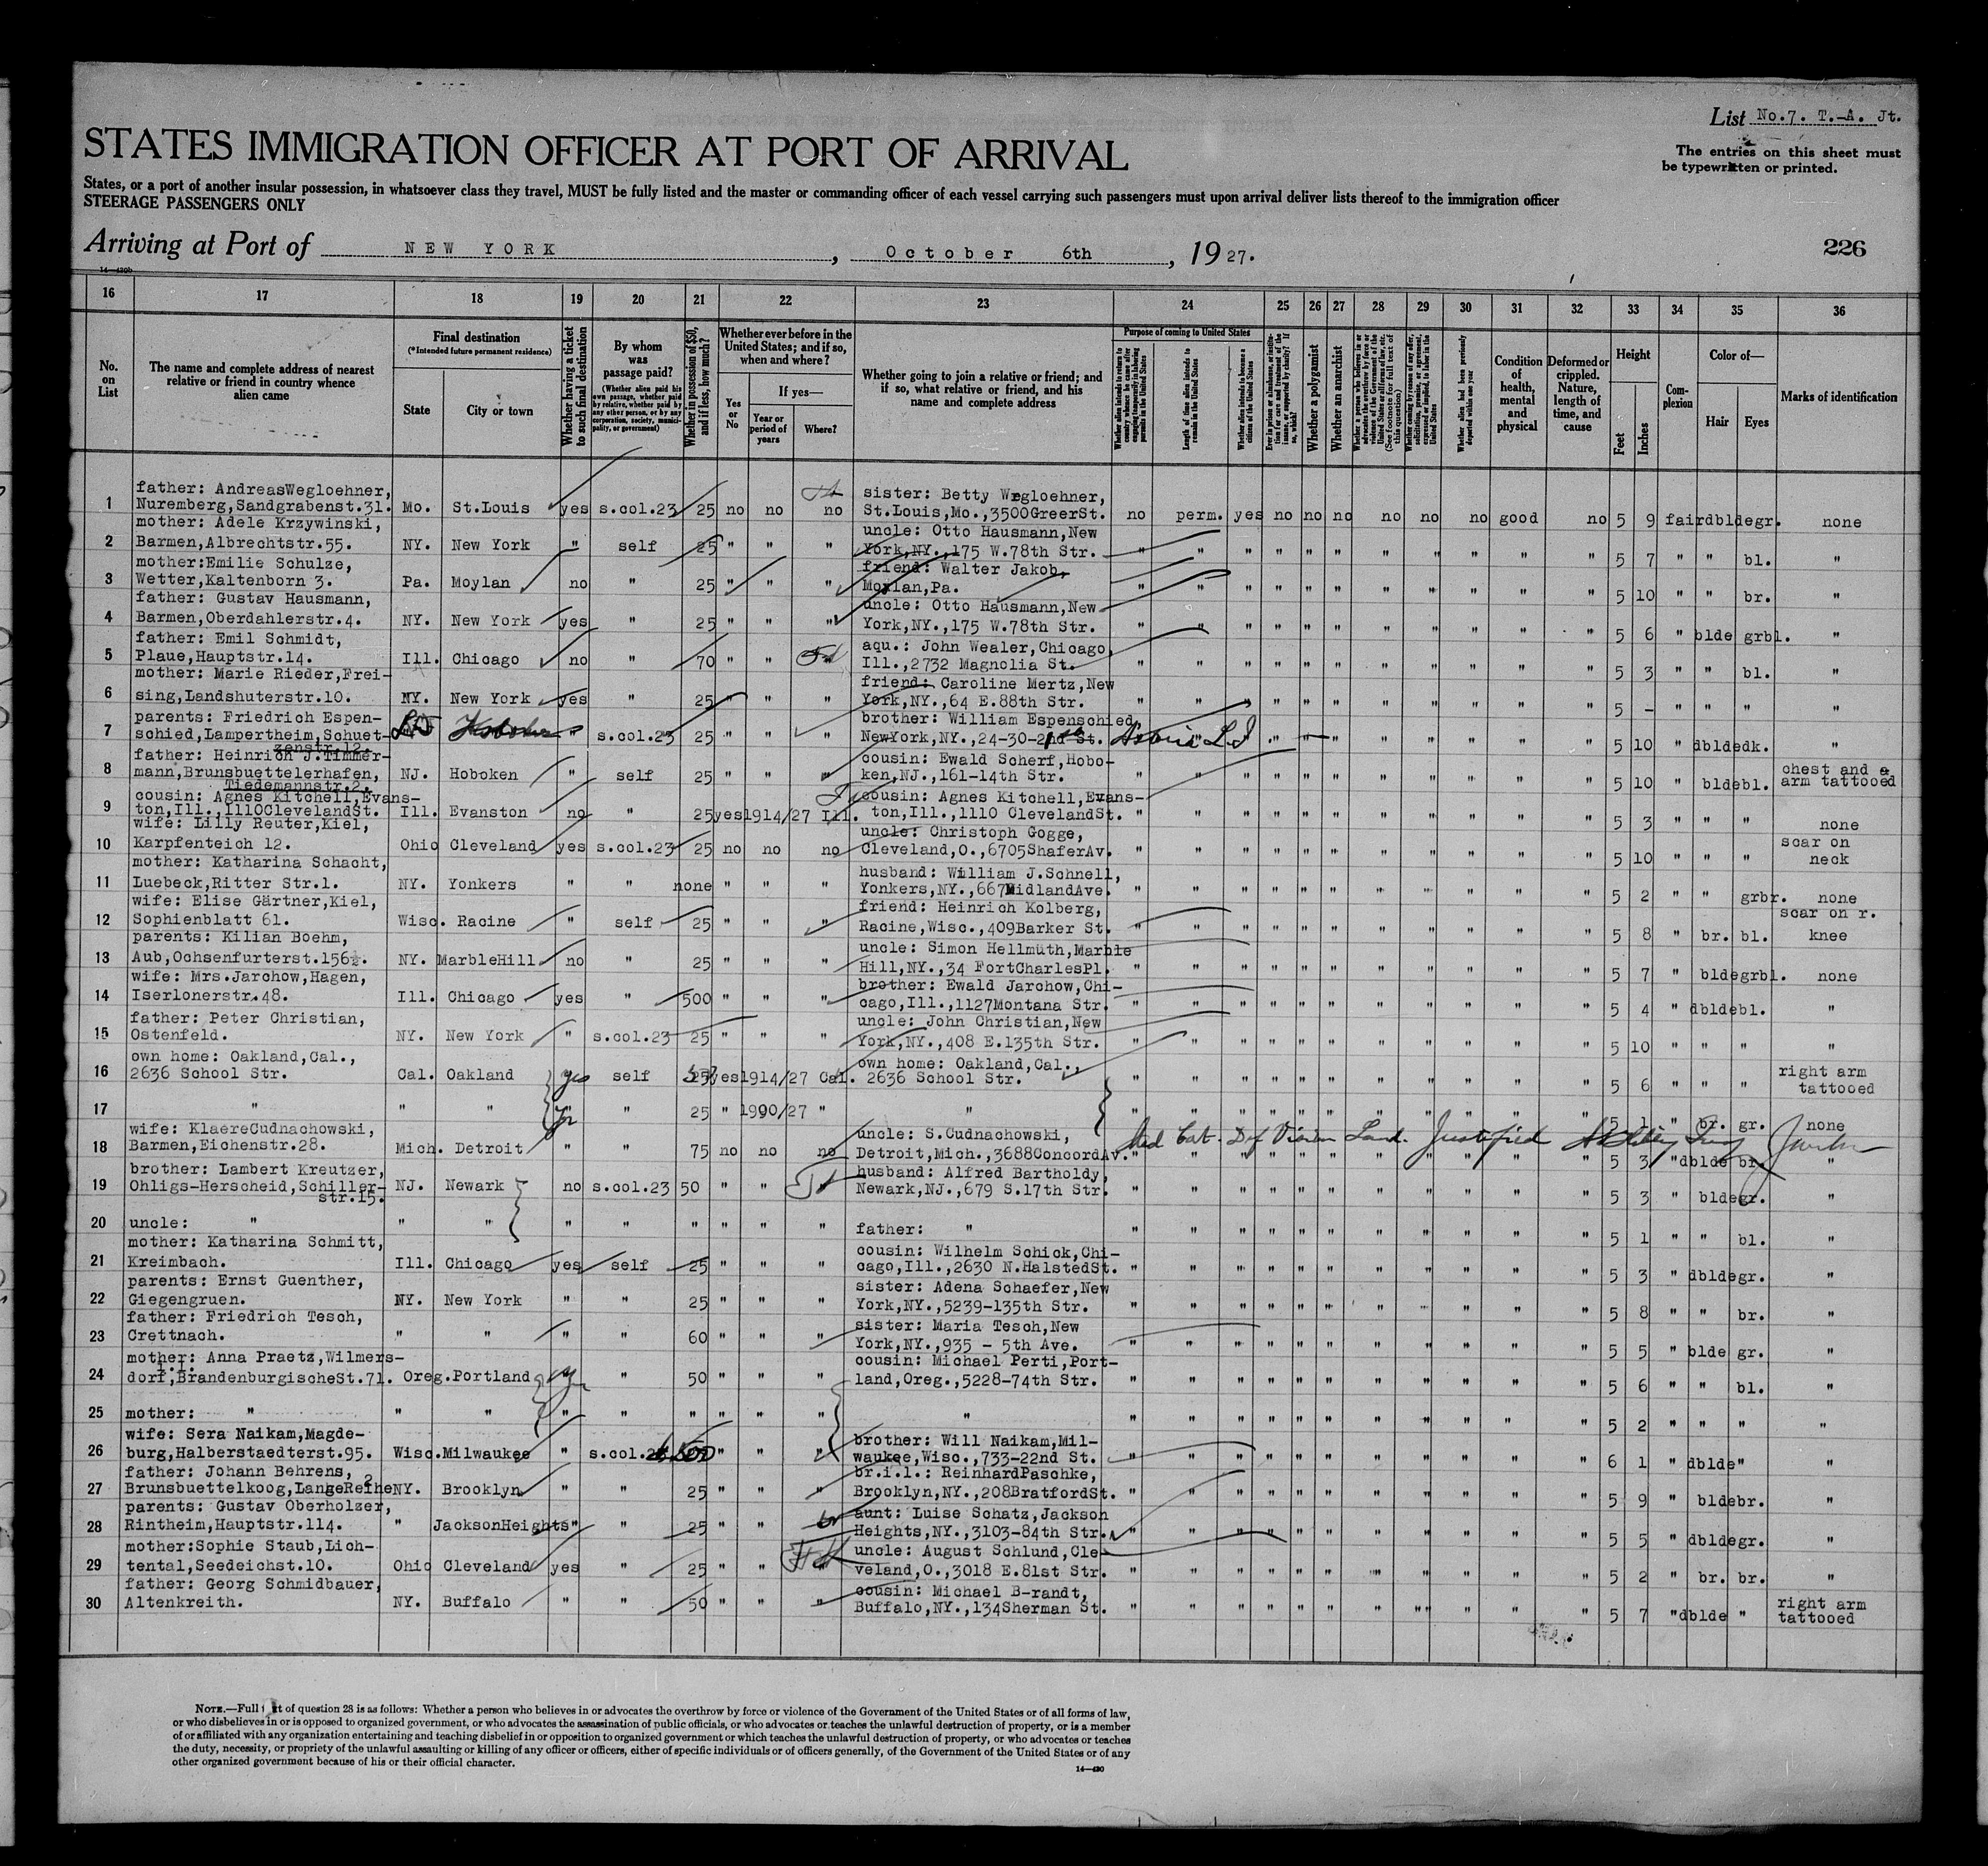 List No.7. T.-A. Jt.
The entries on this sheet must
be typewritten or printed.
STATES IMMIGRATION OFFICER AT PORT OF ARRIVAL
States, or a port of another insular possession, in whatsoever class they travel, MUST be fully listed and the master or commanding officer of each vessel carrying such passengers must upon arrival deliver lists thereof to the immigration officer
STEERAGE PASSENGERS ONLY
Arriving at Port of NEW YORK, October 6th, 1927.
226
16 17 18 19 20 21 22 23 24 25 26 27 28 29 30 31 32 33 34 35 36
No. on List
The name and complete address of nearest relative or friend in country whence alien came
Final destination
(*Intended future permanent residence)
State
City or town
Whether having a ticket to such final destination
By whom was passage paid?
(Whether alien paid his own passage, whether paid by relative, whether paid by any other person, or by any corporation, society, municipality, or government)
Whether in possession of $50, and if less, how much?
Whether ever before in the United States; and if so, when and where?
Yes or No
If yes—
Year or period of years
Where?
Whether going to join a relative or friend; and if so, what relative or friend, and his name and complete address
Purpose of coming to United States
Length of time alien intends to remain in the United States
Whether alien intends to become a citizen of the United States
Whether a polygamist
Whether an anarchist
Whether alien had been previously deported within one year
Condition of health, mental and physical
Deformed or crippled. Nature, length of time, and cause
Height
Feet
Inches
Complexion
Color of—
Hair
Eyes
Marks of identification
father: AndreasWegloehner, sister: Betty Wegloehner,
1 Nuremberg,Sandgrabenst.31. Mo. St.Louis yes s.col.23 25 no no no St.Louis,Mo.,3500GreerSt. no perm. yes no no no no no no good no 5 9 fair dblde gr. none
mother: Adele Krzywinski, uncle: Otto Hausmann,New
2 Barmen,Albrechtstr.55. NY. New York " self 25 " " " York,NY.,175 W.78th Str. " " " " " " " " " " " 5 7 " " bl. "
mother:Emilie Schulze, friend: Walter Jakob,
3 Wetter,Kaltenborn 3. Pa. Moylan no " 25 " " " Moylan,Pa. " " " " " " " " " " " 5 10 " " br. "
father: Gustav Hausmann, uncle: Otto Hausmann,New
4 Barmen,Oberdahlerstr.4. NY. New York yes " 25 " " " York,NY.,175 W.78th Str. " " " " " " " " " " " 5 6 " blde grbl. "
father: Emil Schmidt, aqu.: John Wealer,Chicago,
5 Plaue,Hauptstr.14. Ill. Chicago no " 70 " " " Ill.,2732 Magnolia St. " " " " " " " " " " " 5 3 " " bl. "
mother: Marie Rieder,Frei- friend: Caroline Mertz,New
6 sing,Landshuterstr.10. NY. New York yes " 25 " " " York,NY.,64 E.88th Str. " " " " " " " " " " " 5 - " " " "
parents: Friedrich Espen- brother: William Espenschied,
7 schied,Lampertheim,Schuet- Hoboken " s.col.23 25 " " NewYork,NY.,24-30-2nd St. Astoria L I " " " " " " " " 5 10 " dblde dk. "
zenstr.12.
father: Heinrich J.Timmer- cousin: Ewald Scherf,Hobo-
8 mann,Brunsbuettelerhafen, NJ. Hoboken " self 25 " " " ken,NJ.,161-14th Str. " " " " " " " " " " " 5 10 " blde bl. chest and a arm tattooed
Tiedemannstr.2.
cousin: Agnes Kitchell,Evans- cousin: Agnes Kitchell,Evans-
9 ton,Ill.,1110ClevelandSt. Ill. Evanston no " 25 yes 1914/27 Ill. ton,Ill.,1110 ClevelandSt. " " " " " " " " " " " 5 3 " " " none
wife: Lilly Reuter,Kiel, uncle: Christoph Gogge,
10 Karpfenteich 12. Ohio Cleveland yes s.col.23 25 no no no Cleveland,O.,6705ShaferAv. " " " " " " " " " " " 5 10 " " " scar on neck
mother: Katharina Schacht, husband: William J.Schnell,
11 Luebeck,Ritter Str.1. NY. Yonkers " " none " " " Yonkers,NY.,667MidlandAve. " " " " " " " " " " " 5 2 " " grbr. none
wife: Elise Gärtner,Kiel, friend: Heinrich Kolberg,
12 Sophienblatt 61. Wisc. Racine " self 25 " " " Racine,Wisc.,409Barker St. " " " " " " " " " " " 5 8 " br. bl. scar on r. knee
parents: Kilian Boehm, uncle: Simon Hellmuth,Marble
13 Aub,Ochsenfurterst.156½. NY. MarbleHill no " 25 " " " Hill,NY.,34 FortCharlesPl. " " " " " " " " " " " 5 7 " blde grbl. none
wife: Mrs.Jarchow,Hagen, brother: Ewald Jarchow,Chi-
14 Iserlonerstr.48. Ill. Chicago yes " 500 " " " cago,Ill.,1127Montana Str. " " " " " " " " " " " 5 4 " dblde bl. "
father: Peter Christian, uncle: John Christian,New
15 Ostenfeld. NY. New York " s.col.23 25 " " " York,NY.,408 E.135th Str. " " " " " " " " " " " 5 10 " " " "
own home: Oakland,Cal., own home: Oakland,Cal.,
16 2636 School Str. Cal. Oakland yes self 25 yes 1914/27 Cal. 2636 School Str. " " " " " " " " " " " 5 6 " " " right arm tattooed
17 " " " " 25 " 1990/27 " " " " " " " " " " " " " 5 1 " br. gr. none
wife: KlaereCudnachowski, uncle: S.Cudnachowski, Med Cat. Def Vision Land. Justified
18 Barmen,Eichenstr.28. Mich. Detroit " " 75 no no no Detroit,Mich.,3688ConcordAv. " " " " " " " " " " " 5 3 " dblde br. "
brother: Lambert Kreutzer, husband: Alfred Bartholdy,
19 Ohligs-Herscheid,Schiller- NJ. Newark no s.col.23 50 " " Newark,NJ.,679 S.17th Str. " " " " " " " " " " " 5 3 " blde gr. "
str.15.
20 uncle: " " " " " " " " " father: " " " " " " " " " " " " 5 1 " " bl. "
mother: Katharina Schmitt, cousin: Wilhelm Schick,Chi-
21 Kreimbach. Ill. Chicago yes self 25 " " " cago,Ill.,2630 N.HalstedSt. " " " " " " " " " " " 5 3 " dblde gr. "
parents: Ernst Guenther, sister: Adena Schaefer,New
22 Giegengruen. NY. New York " " 25 " " " York,NY.,5239-135th Str. " " " " " " " " " " " 5 8 " " br. "
father: Friedrich Tesch, sister: Maria Tesch,New
23 Crettnach. " " " " 60 " " " York,NY.,935 - 5th Ave. " " " " " " " " " " " 5 5 " blde gr. "
mother: Anna Praetz,Wilmers- cousin: Michael Perti,Port-
24 dorf,BrandenburgischeSt.71. Oreg. Portland " " 50 " " " land,Oreg.,5228-74th Str. " " " " " " " " " " " 5 6 " " bl. "
25 mother: " " " " " " " " " " " " " " " " " " " " " 5 2 " " " "
wife: Sera Naikam,Magde- brother: Will Naikam,Mil-
26 burg,Halberstaedterst.95. Wisc. Milwaukee " s.col. 500 " " " waukee,Wisc.,733-22nd St. " " " " " " " " " " " 6 1 " dblde " "
father: Johann Behrens, br.i.l.: ReinhardPaschke,
27 Brunsbuettelkoog,LangeReihe 2 NY. Brooklyn " " 25 " " " Brooklyn,NY.,208BratfordSt. " " " " " " " " " " " 5 9 " blde br. "
parents: Gustav Oberholzer, aunt: Luise Schatz,Jackson
28 Rintheim,Hauptstr.114. " JacksonHeights " " 25 " " Heights,NY.,3103-84th Str. " " " " " " " " " " " 5 5 " dblde gr. "
mother:Sophie Staub,Lich- uncle: August Schlund,Cle-
29 tental,Seedeichst.10. Ohio Cleveland yes " 25 " " veland,O.,3018 E.81st Str. " " " " " " " " " " " 5 2 " br. br. "
father: Georg Schmidbauer, cousin: Michael B-randt,
30 Altenkreith. NY. Buffalo " " 50 " " " Buffalo,NY.,134Sherman St. " " " " " " " " " " " 5 7 " dblde " right arm tattooed
NOTE.—Full text of question 28 is as follows: Whether a person who believes in or advocates the overthrow by force or violence of the Government of the United States or of all forms of law,
or who disbelieves in or is opposed to organized government, or who advocates the assassination of public officials, or who advocates or teaches the unlawful destruction of property, or is a member
of or affiliated with any organization entertaining and teaching disbelief in or opposition to organized government or which teaches the unlawful destruction of property, or who advocates or teaches
the duty, necessity, or propriety of the unlawful assaulting or killing of any officer or officers, either of specific individuals or of officers generally, of the Government of the United States or of any
other organized government because of his or their official character.
14—430